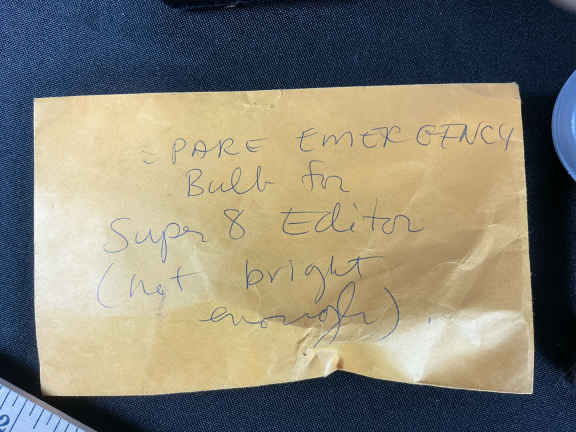 SPARE EMERGENCY
Bulb for
Super 8 Editor
(not bright
enough)
2